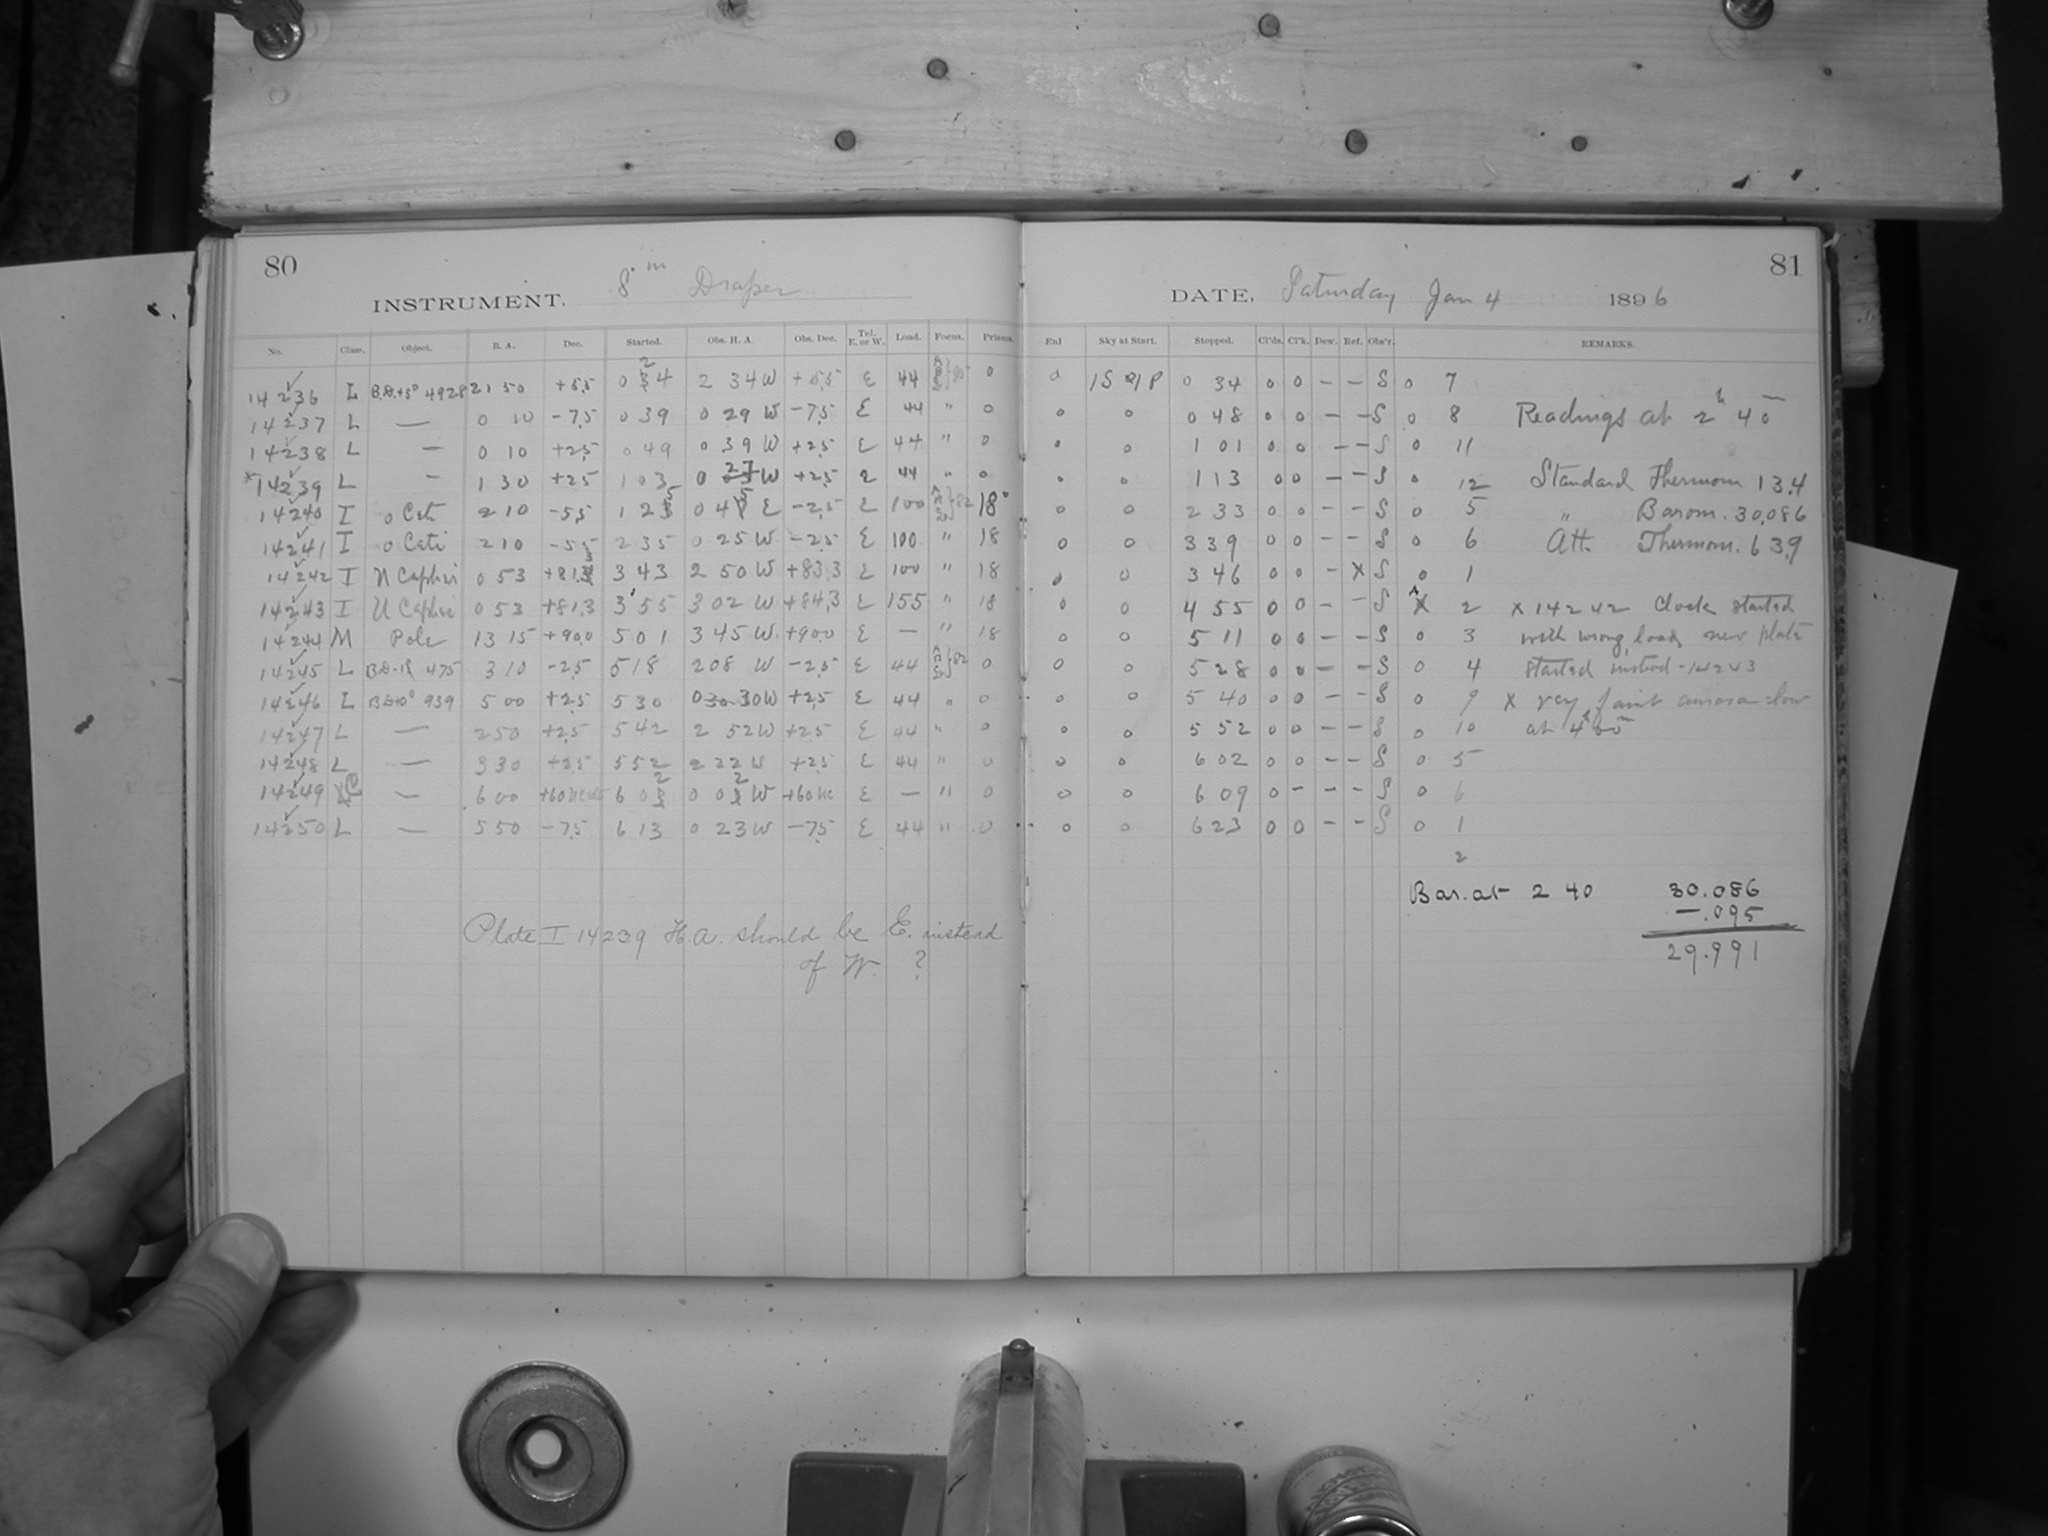 80
INSTRUMENT, 8 in Draper
No. Class. Object. R. A. Dec. Started. Obs. H. A. Obs. Dec. Tel. E. or W. Load. Focus. Prisms.
14236 L B.D.+5° 4928 21 50 +55 2 34 W +55 E 44 0
14237 L — 0 10 -75 0 39 0 29 W -75 E 44 " 0
14238 L — 0 10 +25 0 49 0 39 W +25 E 44 " 0
x 14239 L — 1 30 +25 1 03 0 27 W +25 E 44 " 0
14240 I o Ceti 2 10 -55 0 45 E -25 E 100 18°
14241 I o Ceti 2 10 -55 2 35 0 25 W -25 E 100 " 18
14242 I U Cephei 0 53 +81.3 3 43 2 50 W +83.3 E 100 " 18
14243 I U Cephei 0 53 +81.3 3 55 3 02 W +84.3 E 155 " 18
14244 M Pole 13 15 +90.0 5 01 3 45 W. +90.0 E — " 18
14245 L 475 3 10 -25 5 18 2 08 W -25 E 44 0
14246 L 939 5 00 +25 5 30 0 30 W +25 E 44 " 0
14247 L — 2 50 +25 5 42 2 52 W +25 E 44 " 0
14248 L — 3 30 +25 5 52 2 22 W +25 E 44 " 0
14249 C — 6 00 6 02 0 02 W E — " 0
14250 L — 5 50 -75 6 13 0 23 W -75 E 44 " 0
Plate I 14239 H.A. should be E. instead
of W. ?
81
DATE, Saturday Jan 4 1896
Enl Sky at Start. Stopped. Cl'ds. Cl'k. Dew. Ref. Obs'r. REMARKS.
0 0 34 0 0 - - S 0 7
0 0 0 48 0 0 - - S 0 8 Readings at 2h 40
0 0 1 01 0 0 - - S 0 11
0 0 1 13 0 0 - - S 0 12 Standard Thermom 13.4
0 0 2 33 0 0 - - S 0 5 " Barom. 30.086
0 0 3 39 0 0 - - S 0 6 Att. Thermom. 63.9
0 0 3 46 0 0 - x S 0 1
0 0 4 55 0 0 - - S x 2 x 14242 Clock started
0 0 5 11 0 0 - - S 0 3 with wrong load, new plate
0 0 5 28 0 0 - - S 0 4 started instead - 14243
0 0 5 40 0 0 - - S 0 9 x very faint aurora low
0 0 5 52 0 0 - - S 0 10 at
0 0 6 02 0 0 - - S 0 5
0 0 6 09 0 - - - S 0 6
0 0 6 23 0 0 - - S 0 1
2
Bar. at 2 40 30.086
-.095
29.991